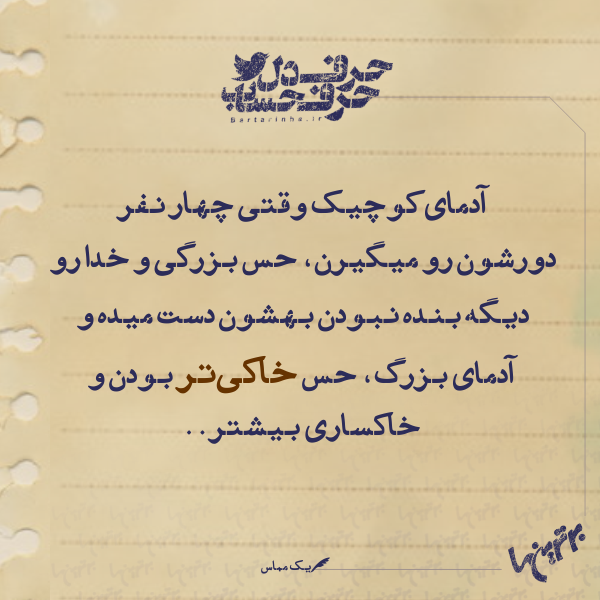 حرف دل
حرف حساب
Bartarinha.ir
آدمای کوچیک وقتی چهار نفر
دورشون رو میگیرن، حس بزرگی و خدا رو
دیگه بنده نبودن بهشون دست میده و
آدمای بزرگ، حس خاکی‌تر بودن و
خاکساری بیشتر..
یک مماس
برترین‌ها